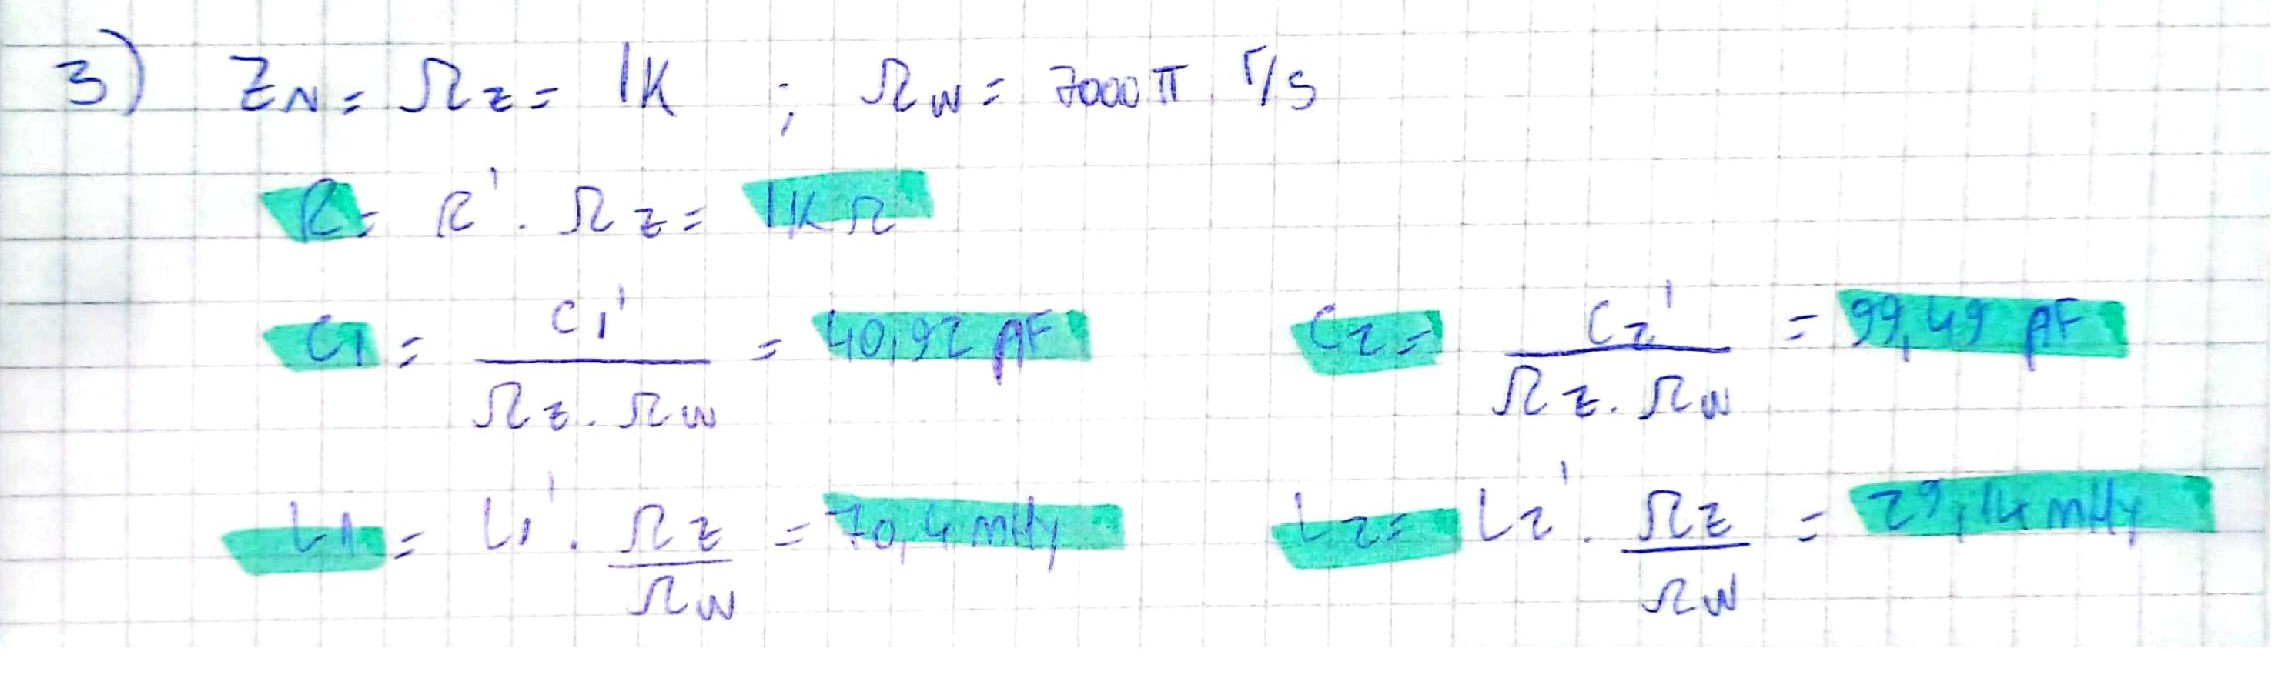 3) ZN = Ωz = 1K ; Ωw = 7000π r/s
R = R' . Ωz = 1KΩ
C1 = C1' / Ωz . Ωw = 40,92 pF C2 = C2' / Ωz . Ωw = 99,49 pF
L1 = L1' . Ωz / Ωw = 70,4 mHy L2 = L2' . Ωz / Ωw = 29,14 mHy